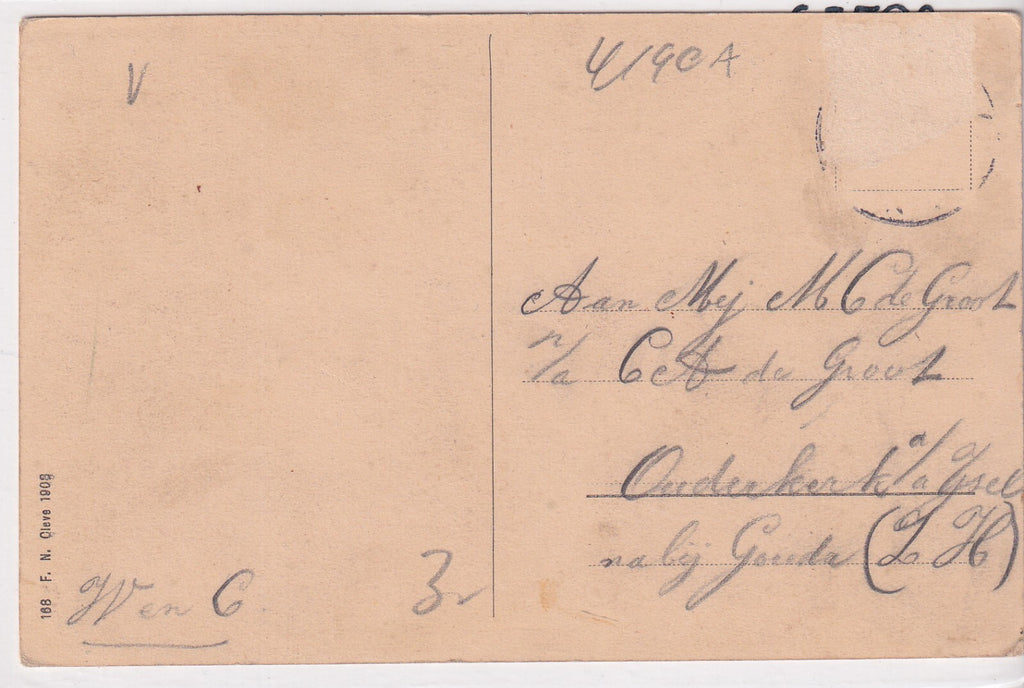 V
4/19CA
Aan Mej M C de Groot
n/a C A de Groot
Ouderkerk a/a Ijsel
nabij Gouda (Z H)
W en C.
3
168 F. N. Cleve 1908